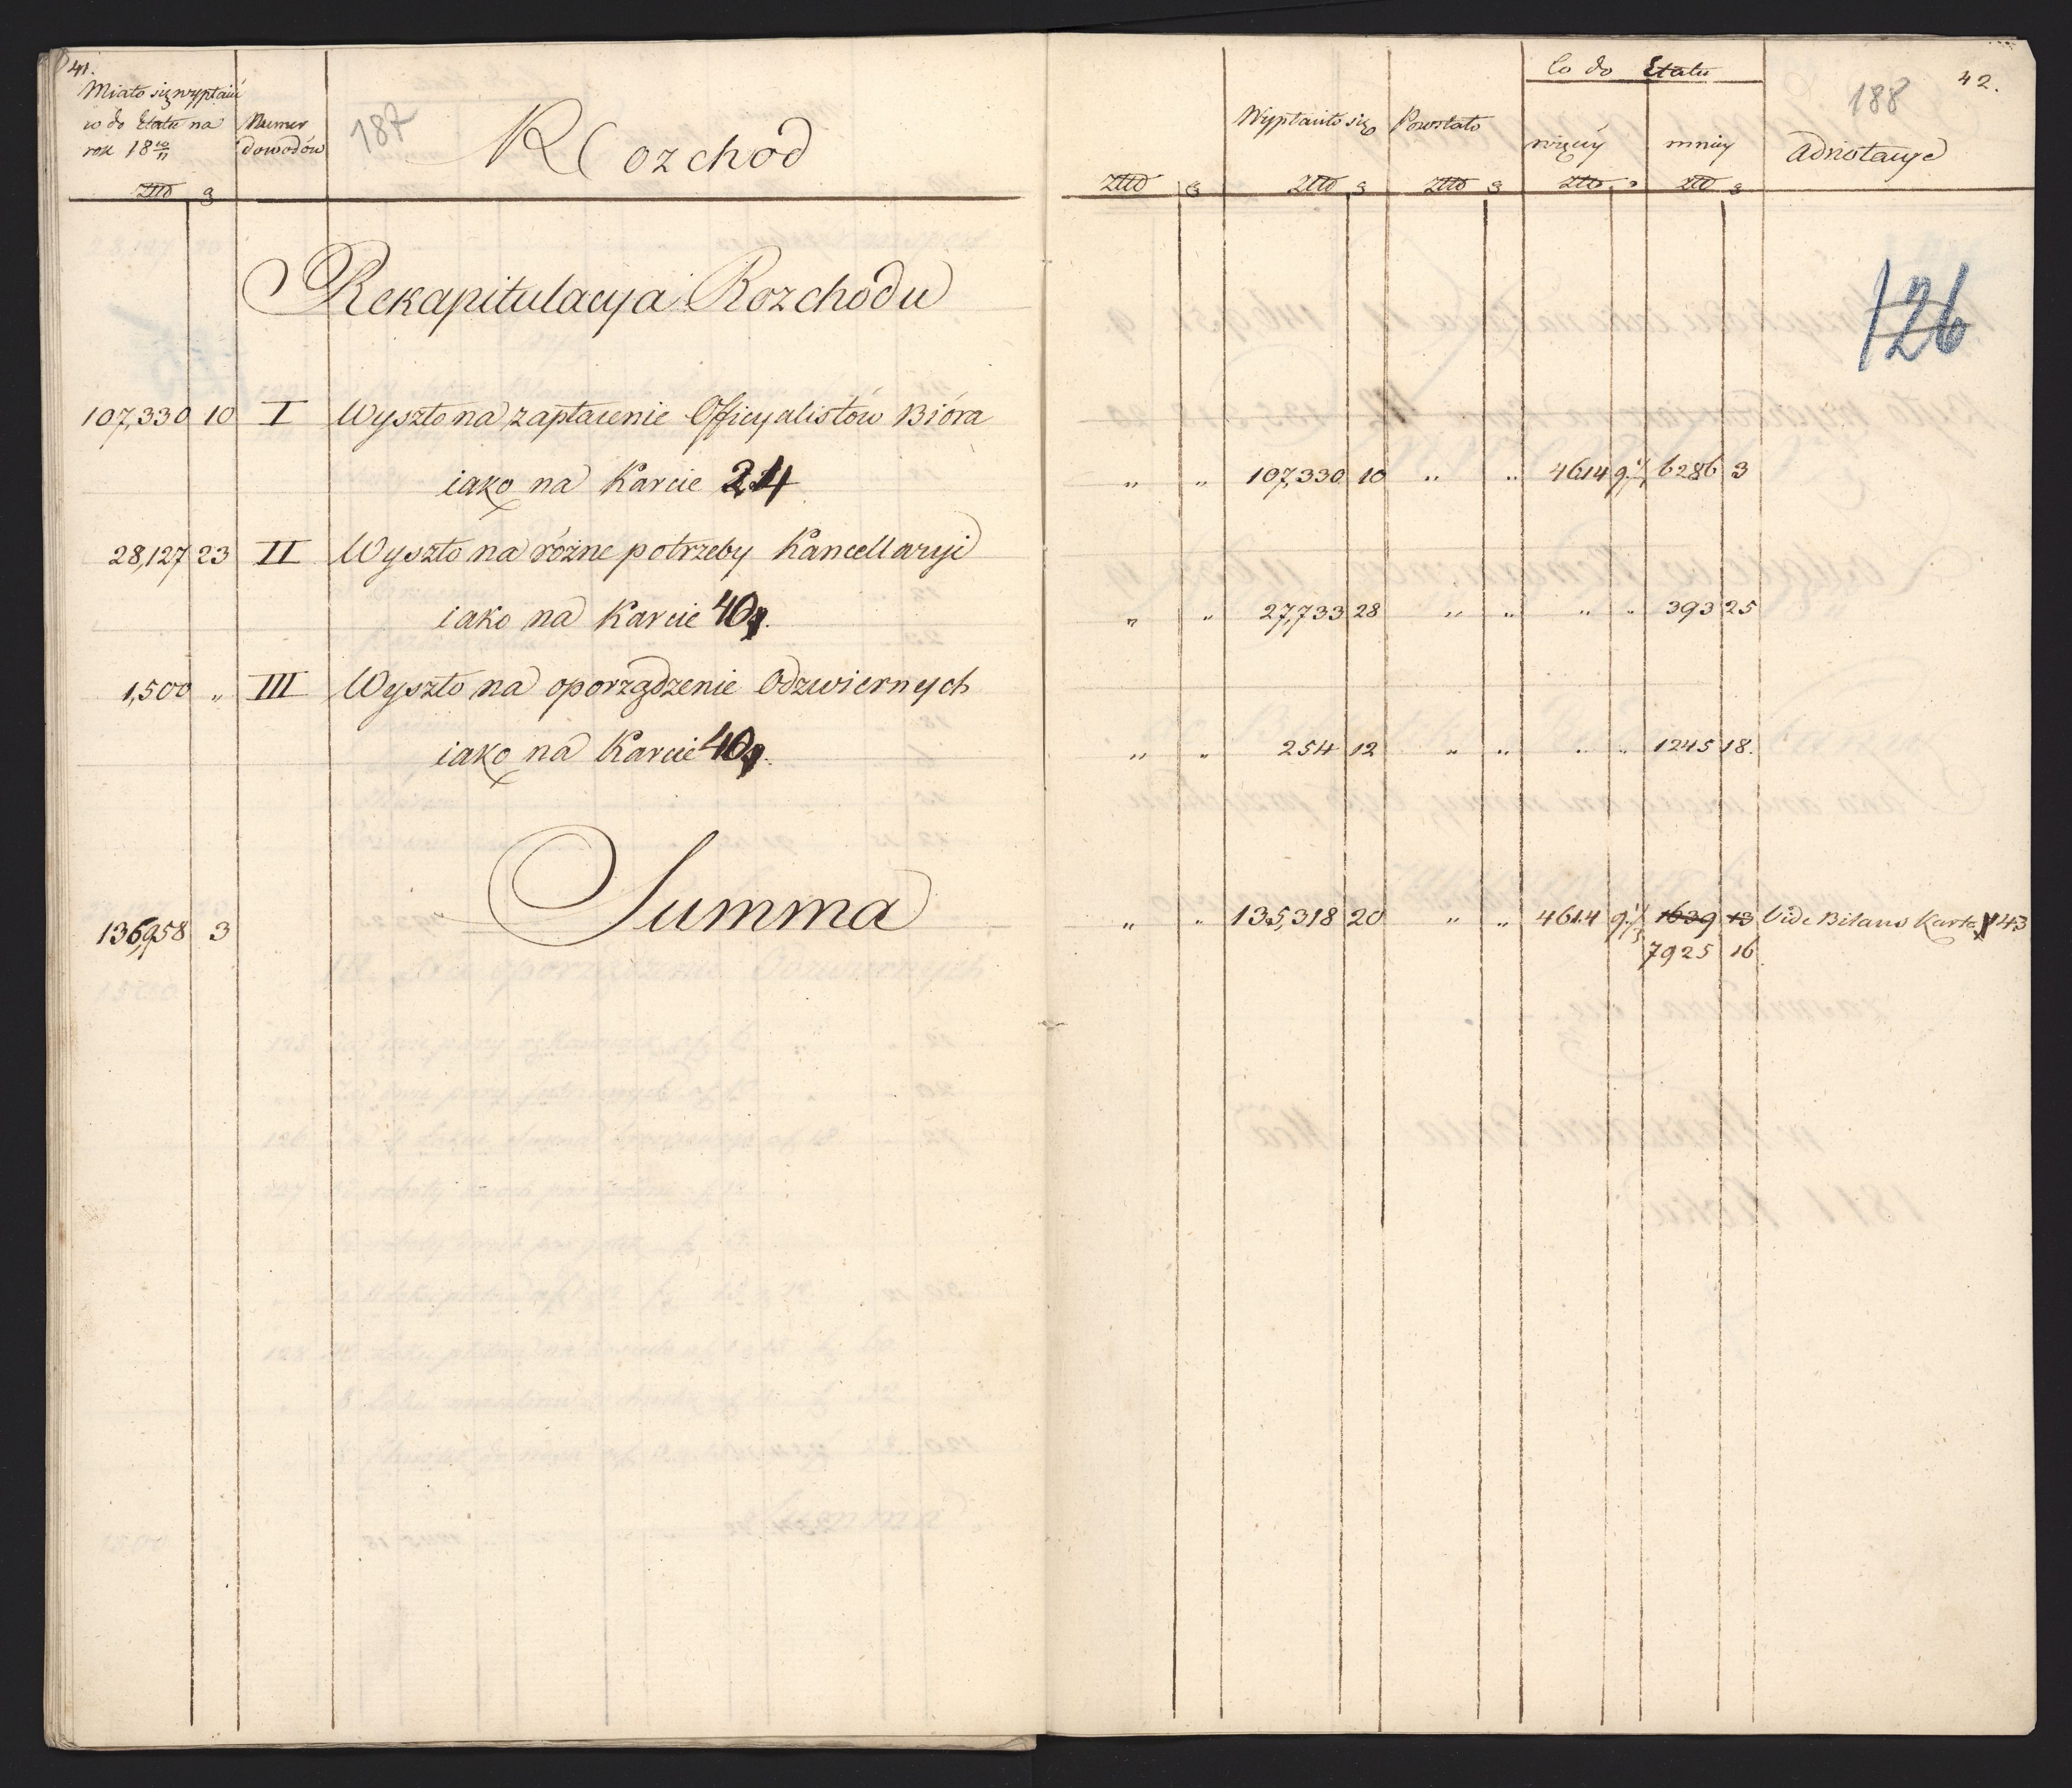 41.
Miało się wypłacić
co do Etatu na
rok 18 10/11
Numer
dowodów
187
Rozchod
Złto g
Rekapitulacyja Rozchodu
107,330 10 I Wyszło na zapłacenie Officyalistów Bióra
iako na Karcie 24
28,127 23 II Wyszło na różne potrzeby Kancellaryi
iako na Karcie 40
1,500 „ III Wyszło na oporządzenie Odzwiernych
iako na Karcie 40
136,958 3 Summa
42.
188
Co do Etatu
Wypłaciło się Pozostało więcey mniey Adnotacye
Złto g Złto g Złto g Złto g Złto g
126
„ „ 107,330 10 „ „ 4614 9 6286 3
„ „ 27,733 28 „ „ „ „ 393 25
„ „ 254 12 „ „ „ „ 1245 18.
„ „ 135,318 20 „ „ 4614 9 1639 13 Vide Bilans Karta 43
7925 16